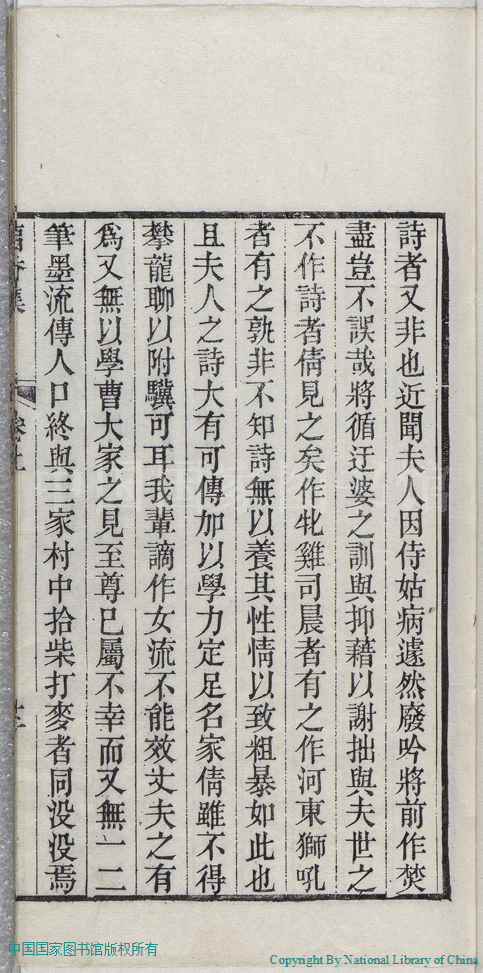 詩者又非也近聞夫人因侍姑病遽然廢吟將前作焚
盡豈不誤哉將循迂婆之訓與抑藉以謝拙與夫世之
不作詩者倩見之矣作牝雞司晨者有之作河東獅吼
者有之孰非不知詩無以養其性情以致粗暴如此也
且夫人之詩大有可傳加以學力定足名家倩雖不得
攀龍聊以附驥可耳我輩謫作女流不能效丈夫之有
爲又無以學曹大家之見至尊已屬不幸而又無一二
筆墨流傳人口終與三家村中拾柴打麥者同没没焉
中国国家图书馆版权所有
Copyright By National Library of China